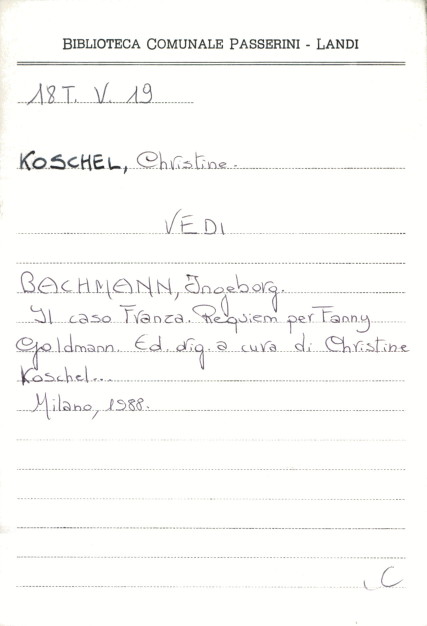 BIBLIOTECA COMUNALE PASSERINI - LANDI
18T. V. 19
KOSCHEL, Christine.
VEDI
BACHMANN, Ingeborg.
Il caso Franza. Requiem per Fanny
Goldmann. Ed. dig. a cura di Christine
Koschel...
Milano, 1988.
C